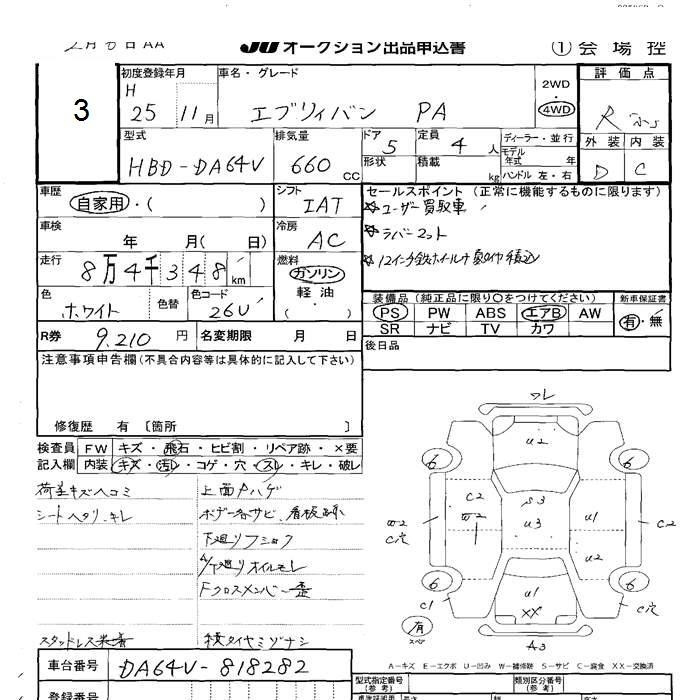 JU オークション出品申込書 ① 会場控
3
初度登録年月 車名・グレード 2WD 評価点
H 25 11月 エブリィバン PA 4WD R
型式 排気量 ドア 定員 ディーラー・並行 外装 内装
HBD-DA64V 660 CC 5 4人 モデル年式 年 D C
形状 積載 kg ハンドル 左・右
車歴 シフト セールスポイント (正常に機能するものに限ります)
自家用・( ) IAT ☆ユーザー買取車
車検 冷房 ☆ラバーマット
年 月( 日) AC
走行 燃料
8万4千348km ガソリン
軽油
( )
色 色替 色コード 装備品(純正品に限り○をつけてください) 新車保証書
ホワイト 26U PS PW ABS エアB AW 有・無
SR ナビ TV カワ
R券 9,210円 名変期限 月 日 後日品
注意事項申告欄(不具合内容等は具体的に記入して下さい)
修復歴 有 〔箇所 〕
検査員 FW キズ・飛石・ヒビ割・リペア跡・×要
記入欄 内装 キズ・汚レ・コゲ・穴・スレ・キレ・破レ
荷室キズヘコミ 上面Pハゲ
シートヘタリ、キレ ボデー各サビ、看板跡
下廻りフショク
下廻りオイルモレ
Fクロスメンバー歪
スタッドレス装着 積タイヤミゾナシ
ワレ
U2
6 6
C2 S3
U2 U3 U1 C2
C穴 U2
6 6
C1 U1 C穴
XX
有
スペア
A3
A-キズ E-エクボ U-凹み W-補修跡 S-サビ C-腐食 XX-交換済
車台番号 DA64V-818282 型式指定番号(参考) 類別区分番号(参考)
登録番号